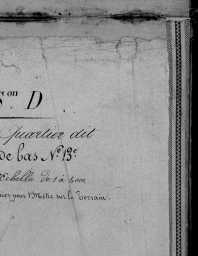 on
S. D
Quartier dit
de bas N.º 13.e
Echelle de 1 à
pour Mètre sur le Terrain.